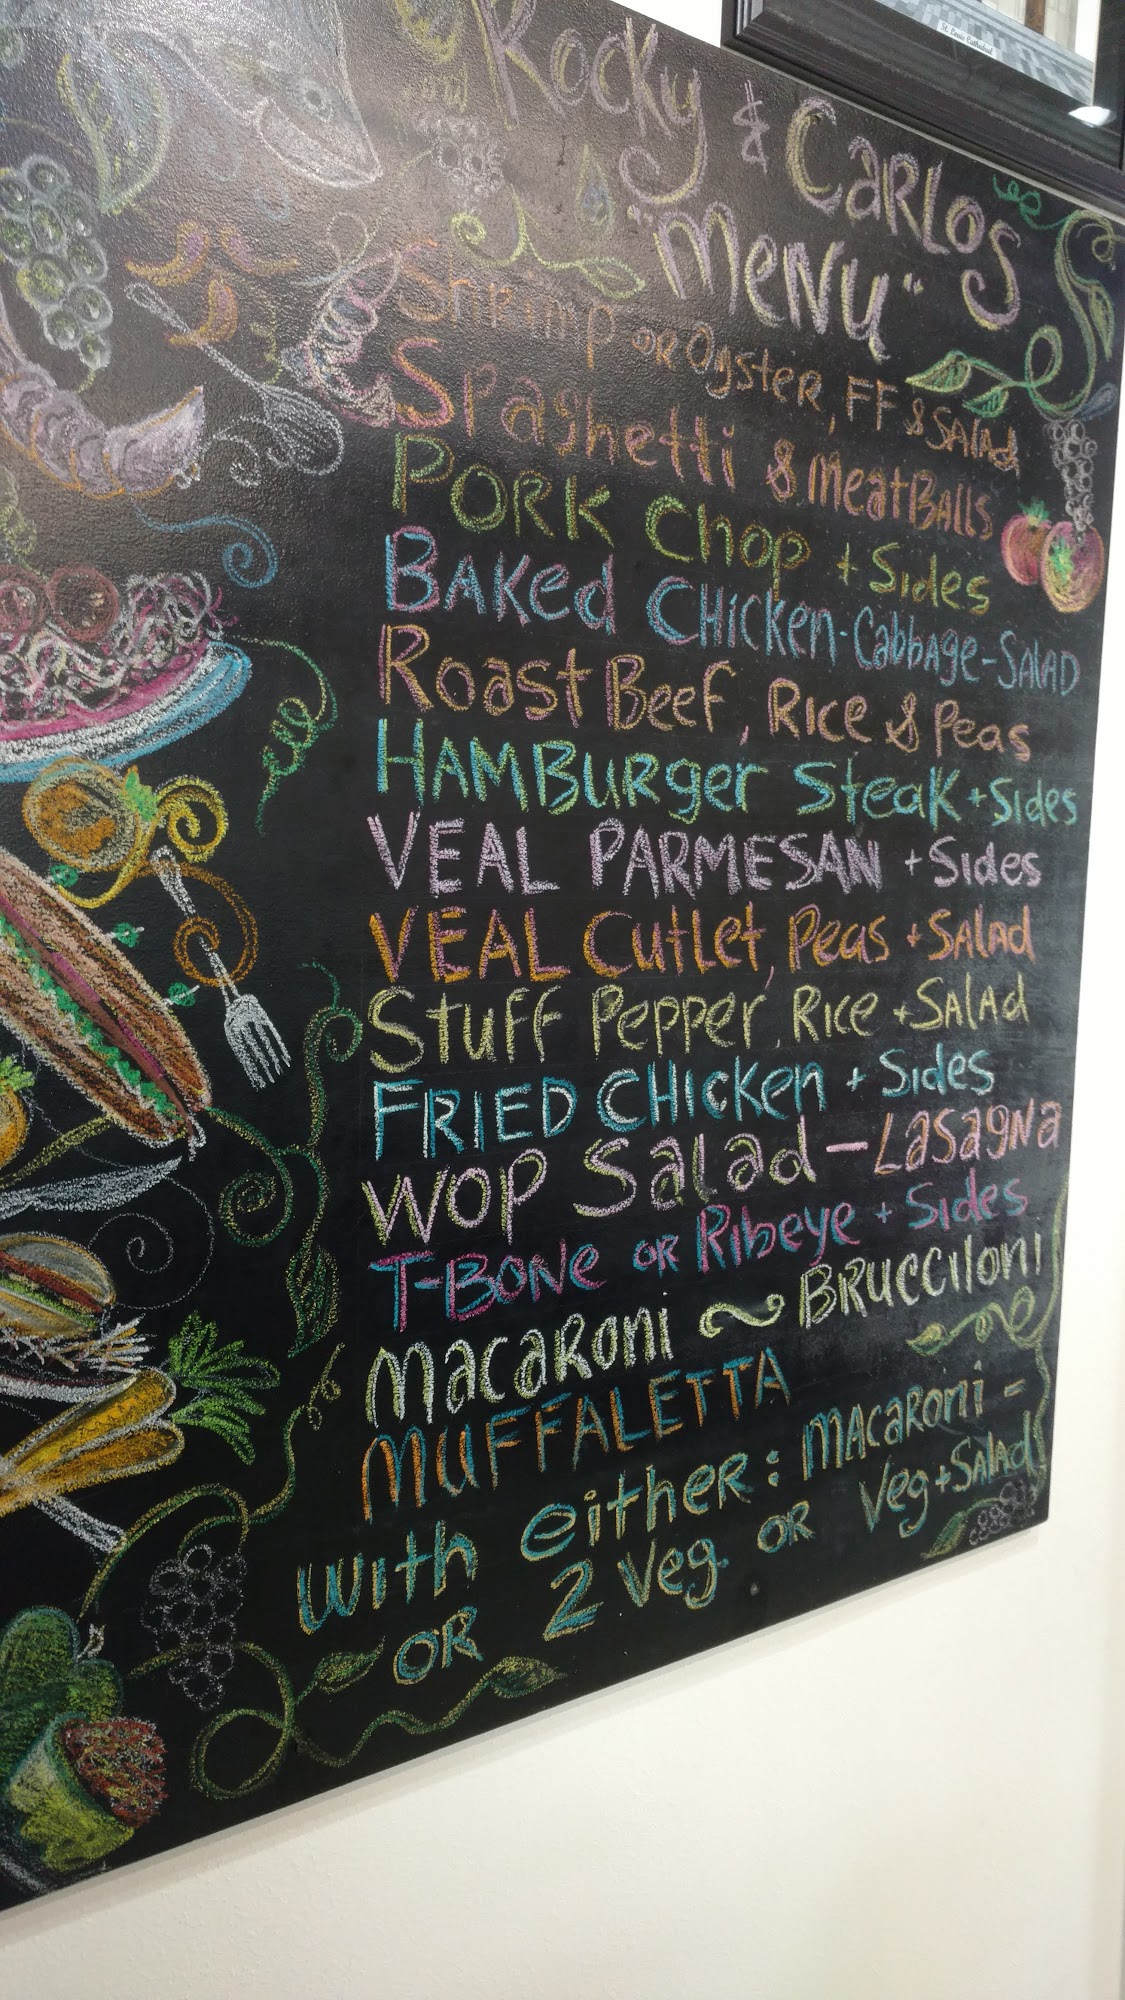 St. Louis Cathedral
Rocky & Carlos
"Menu"
Shrimp or Oyster, FF & Salad
Spaghetti & MeatBalls
Pork Chop + Sides
Baked Chicken-Cabbage-Salad
Roast Beef, Rice & Peas
Hamburger Steak + Sides
Veal Parmesan + Sides
Veal Cutlet, Peas + Salad
Stuff Pepper, Rice + Salad
Fried Chicken + Sides
Wop Salad - Lasagna
T-Bone or Ribeye + Sides
Macaroni ~ Brucciloni
Muffaletta
with either: Macaroni -
or 2 Veg. or Veg + Salad